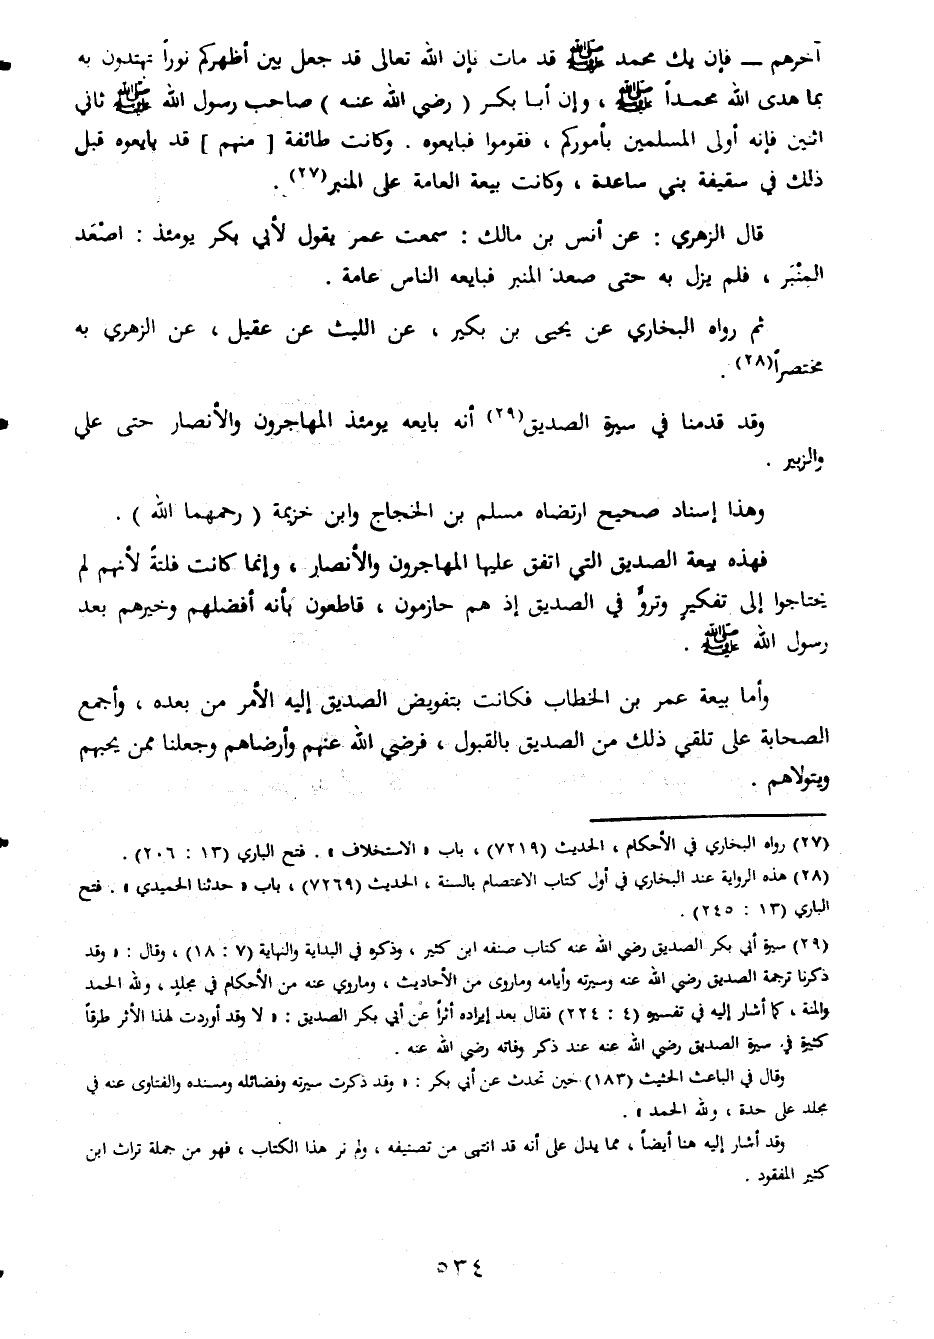 آخرهم ــ فإن يك محمد ﷺ قد مات فإن الله تعالى قد جعل بين أظهركم نوراً تهتدون به
بما هدى الله محمداً ﷺ ، وإن أبا بكر ( رضي الله عنه ) صاحب رسول الله ﷺ ثاني
اثنين فإنه أولى المسلمين بأموركم ، فقوموا فبايعوه . وكانت طائفة [ منهم ] قد بايعوه قبل
ذلك في سقيفة بني ساعدة ، وكانت بيعة العامة على المنبر(٢٧) .
قال الزهري : عن أنس بن مالك : سمعت عمر يقول لأبي بكر يومئذ : اصْعَد
المِنْبَر ، فلم يزل به حتى صعد المنبر فبايعه الناس عامة .
ثم رواه البخاري عن يحيى بن بكير ، عن الليث عن عقيل ، عن الزهري به
مختصراً(٢٨) .
وقد قدمنا في سيرة الصديق(٢٩) أنه بايعه يومئذ المهاجرون والأنصار حتى علي
والزبير .
وهذا إسناد صحيح ارتضاه مسلم بن الحجاج وابن خزيمة ( رحمهما الله ) .
فهذه بيعة الصديق التي اتفق عليها المهاجرون والأنصار ، وإنما كانت فلتةً لأنهم لم
يحتاجوا إلى تفكيرٍ وتروٍّ في الصديق إذ هم حازمون ، قاطعون بأنه أفضلهم وخيرهم بعد
رسول الله ﷺ .
وأما بيعة عمر بن الخطاب فكانت بتفويض الصديق إليه الأمر من بعده ، وأجمع
الصحابة على تلقي ذلك من الصديق بالقبول ، فرضي الله عنهم وأرضاهم وجعلنا ممن يحبهم
ويتولاهم .
(٢٧) رواه البخاري في الأحكام ، الحديث (٧٢١٩) ، باب « الاستخلاف » . فتح الباري (١٣ : ٢٠٦) .
(٢٨) هذه الرواية عند البخاري في أول كتاب الاعتصام بالسنة ، الحديث (٧٢٦٩) ، باب « حدثنا الحميدي » . فتح
الباري (١٣ : ٢٤٥) .
(٢٩) سيرة أبي بكر الصديق رضي الله عنه كتاب صنفه ابن كثير ، وذكره في البداية والنهاية (٧ : ١٨) ، وقال : « وقد
ذكرنا ترجمة الصديق رضي الله عنه وسيرته وأيامه وماروى من الأحاديث ، وماروي عنه من الأحكام في مجلدٍ ، ولله الحمد
والمنة ، كما أشار إليه في تفسيره (٤ : ٢٢٤) فقال بعد إيراده أثراً عن أبي بكر الصديق : « لا وقد أوردت لهذا الأثر طرقاً
كثيرة في سيرة الصديق رضي الله عنه عند ذكر وفاته رضي الله عنه .
وقال في الباعث الحثيث (١٨٣) حين تحدث عن أبي بكر : « وقد ذكرت سيرته وفضائله ومسنده والفتاوى عنه في
مجلد على حدة ، ولله الحمد » .
وقد أشار إليه هنا أيضاً ، مما يدل على أنه قد انتهى من تصنيفه ، ولم نر هذا الكتاب ، فهو من جملة تراث ابن
كثير المفقود .
٥٣٤